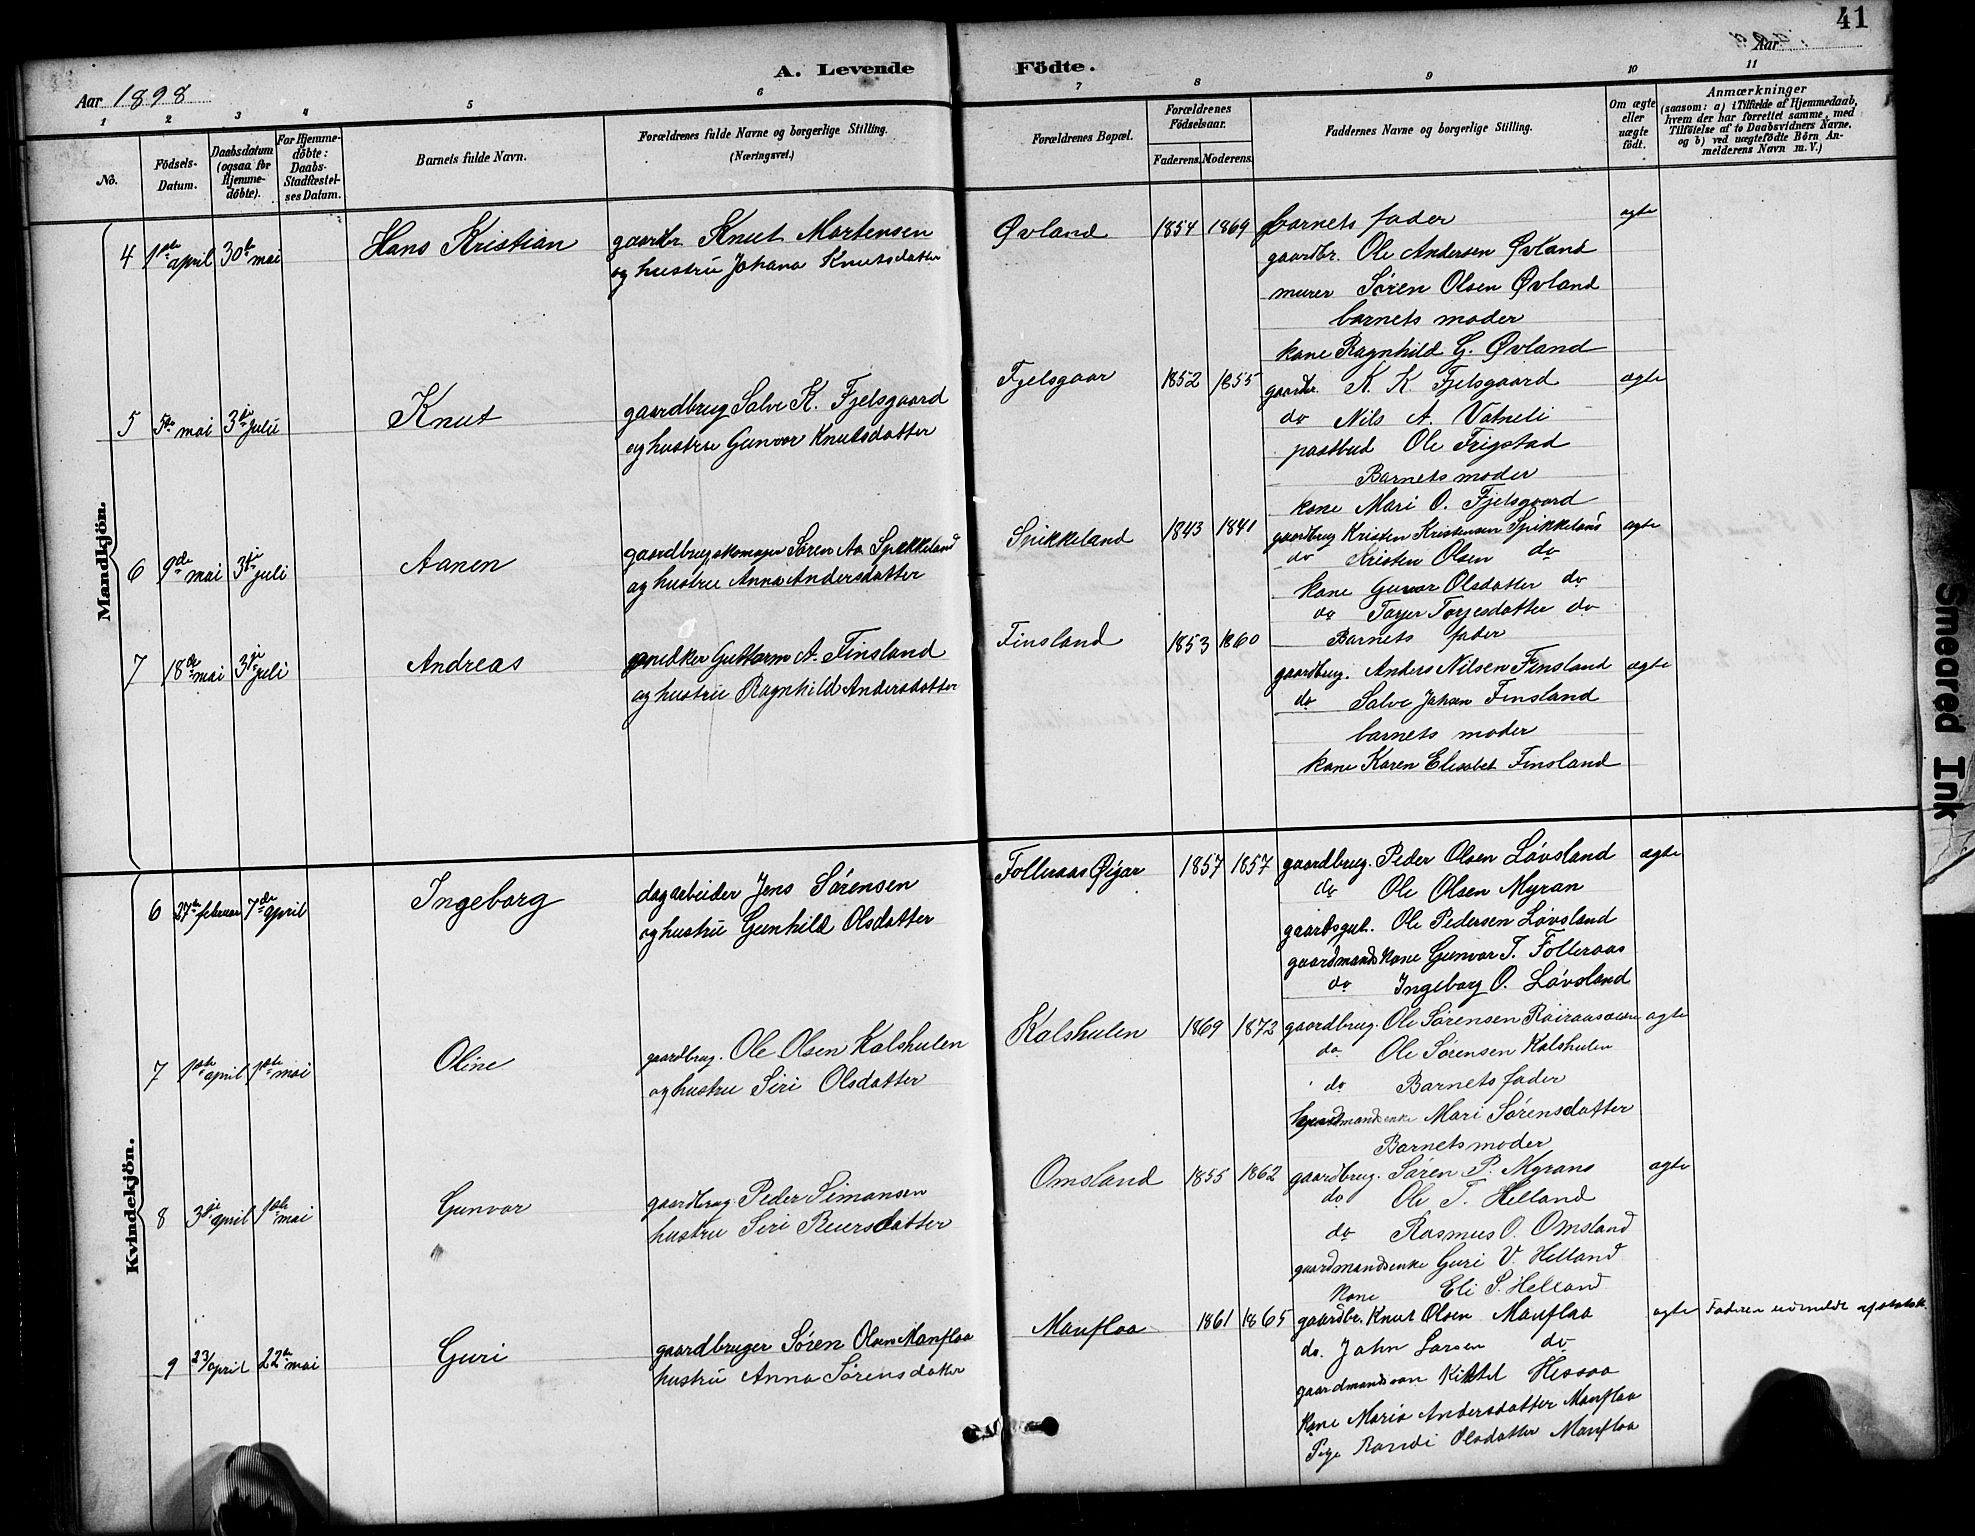 41
Aar 1898
A. Levende Födte.
Aar
1 2 3 4 5 6 7 8 9 10 11
No.
Födsels-Datum.
Daabsdatum (ogsaa for Hjemme-döbte).
For Hjemme-döbte: Daabs-Stadfæstel-ses Datum.
Barnets fulde Navn.
Forældrenes fulde Navne og borgerlige Stilling. (Næringsvei.)
Forældrenes Bopæl.
Forældrenes Födselsaar.
Faderens. Moderens.
Faddernes Navne og borgerlige Stilling.
Om ægte eller uægte födt.
Anmærkninger
(saasom: a) i Tilfælde af Hjemmedaab, hvem der har forrettet samme, med Tilföielse af to Daabsvidners Navne, og b) ved uægtefödte Börn An-melderens Navn m. V.)
Mandkjön.
4 1ste april 30te mai Hans Kristian
gaardbr. Knut Martensen
og hustru Johana Knutsdatter
Øvland 1854 1869
barnets fader
ægte
gaardbr. Ole Andersen Øvland
murer Søren Olsen Øvland
barnets moder
kone Ragnhild G. Øvland
5 5te mai 3die juli Knut
gaardbrug Salve K. Fjelsgaard
og hustru Gunvor Knutsdatter
Fjelsgaar 1852 1855
gaardbr. K. K. Fjelsgaard
ægte
do Nils A. Vatneli
postbud Ole Frigstad
Barnets moder
kone Mari O. Fjelsgaard
6 9de mai 3die juli Aanen
gaardbrug skomager Søren Aa Spikkeland
og hustru Anna Andersdatter
Spikkeland 1843 1841
gaardbrug Kristen Kristensen Spikkeland
ægte
do Kristen Olsen do
kone Gunvor Olsdatter do
do Torjer Torjesdatter do
Barnets fader
7 18de mai 3die juli Andreas
snedker Guttorm A. Finsland
og hustru Ragnhild Andersdatter
Finsland 1853 1860
gaardbrug. Anders Nilsen Finsland
ægte
do Salve Johan Finsland
barnets moder
kone Karen Elisabet Finsland
Kvindekjön.
6 27de februar 7de april Ingeborg
dagarbeider Jens Sørensen
og hustru Gunhild Olsdatter
Folleraas Øigar 1857 1857
gaardbrug. Peder Olsen Løvsland
ægte
do Ole Olsen Myran
gaardsgut. Ole Pedersen Løvsland
gaardmands kone Gunvor T. Folleraas
do Ingeborg O. Løvsland
7 1ste april 1ste mai Oline
gaardbrug. Ole Olsen Kalshulen
og hustru Siri Olsdatter
Kalshulen 1869 1872
gaardbrug. Ole Sørensen
ægte
do Ole Sørensen Kalshulen
do Barnets fader
gaardmandsenke Mari Sørensdatter
Barnets moder
8 3die april 1ste mai Gunvor
gaardbrug. Peder Simonsen
hustru Siri Reiersdatter
Omsland 1855 1862
gaardbrug. Søren P. Myrans
ægte
do Ole T. Helland
do Rasmus O. Omsland
gaardmandsenke Guri V. Helland
Kone Eli S. Helland
9 23/april 22de mai Guri
gaardbruger Søren Olsen Manflaa
hustru Anna Sørensdatter
Manflaa 1861 1865
gaardbr. Knut Olsen Manflaa
ægte
Faderen udmeldt af statsk.
do. John Larsen do
gaardmandsøn Kittel Hessaa
Kone Maria Andersdatter Manflaa
Pige Randi Olsdatter Manflaa
Smeared Ink